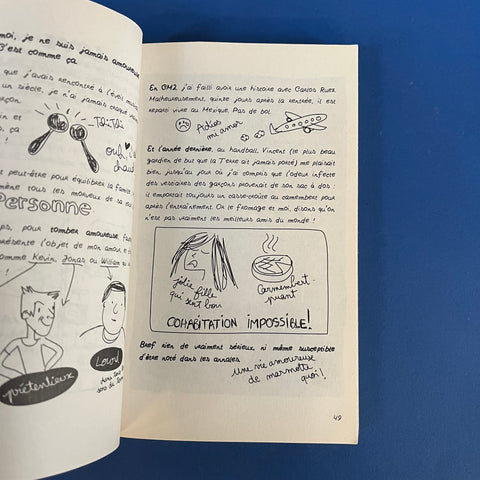 moi, je ne suis jamais amoureuse
C'est comme ça
que j'avais rencontré à l'éveil
un siècle, je n'ai jamais craqué
garçon
in et
TaiTai
ça
!
ouh
chaud
t peut-être pour équilibrer la famille
mène tous les morveux de sa
Personne
ps, pour tomber amoureuse, faut
présente l'objet de mon amour
comme Kevin, Jonas ou William
prétentieux
Lourd
En CM2, j'ai failli avoir une histoire avec Carlos Ruez.
Malheureusement, quinze jours après la rentrée, il est
reparti vivre au Mexique. Pas de bol.
Adios
mi amor
Et l'année dernière, au handball, Vincent (le plus beau
gardien de but que la Terre ait jamais porté) me plaisait
bien, jusqu'au jour où j'ai compris que l'odeur infecte
des vestiaires des garçons provenait de son sac à dos :
il emportait toujours un casse-croûte au camembert pour
après l'entraînement. Or le fromage et moi, disons qu'on
n'est pas vraiment les meilleurs amis du monde !
jolie fille
qui sent bon
Carmembert
puant
COHABITATION IMPOSSIBLE!
Bref rien de vraiment sérieux, ni même susceptible
d'être noté dans les annales.
Une vie amoureuse
de marmotte
quoi !
49